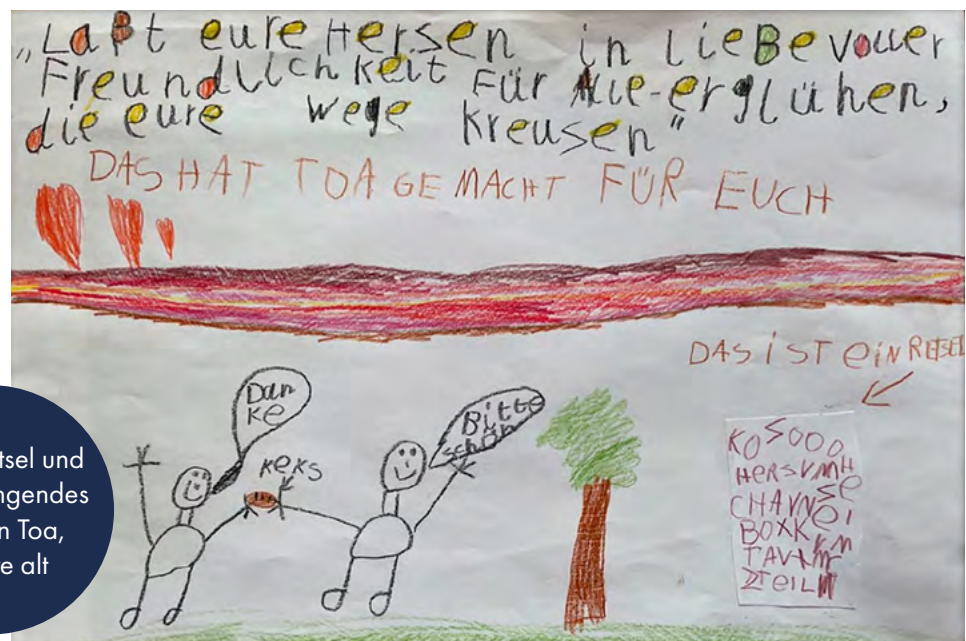 „Laßt eure Hersen in LieBevoller
Freundlichkeit Für Alle-erglühen,
die eure wege kreusen"
DAS HAT TOA GEMACHT FÜR EUCH
DAS iST eiN RETSEL
Dan
ke
Bitte
schön
keks
KO
HERS
CHAVN
BOXK
ZTEIL
tsel und
ngendes
n Toa,
e alt